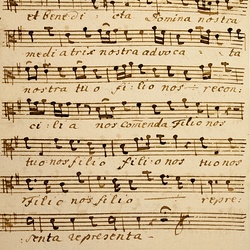 et bene di cta Domina nostra
mediatrix nostra advoca ta
nostra tuo fi lio nos recon
ci li a nos comenda Filio nos
tuo nos filio filio nos tuo nos
Filio nos filio repre
senta representa